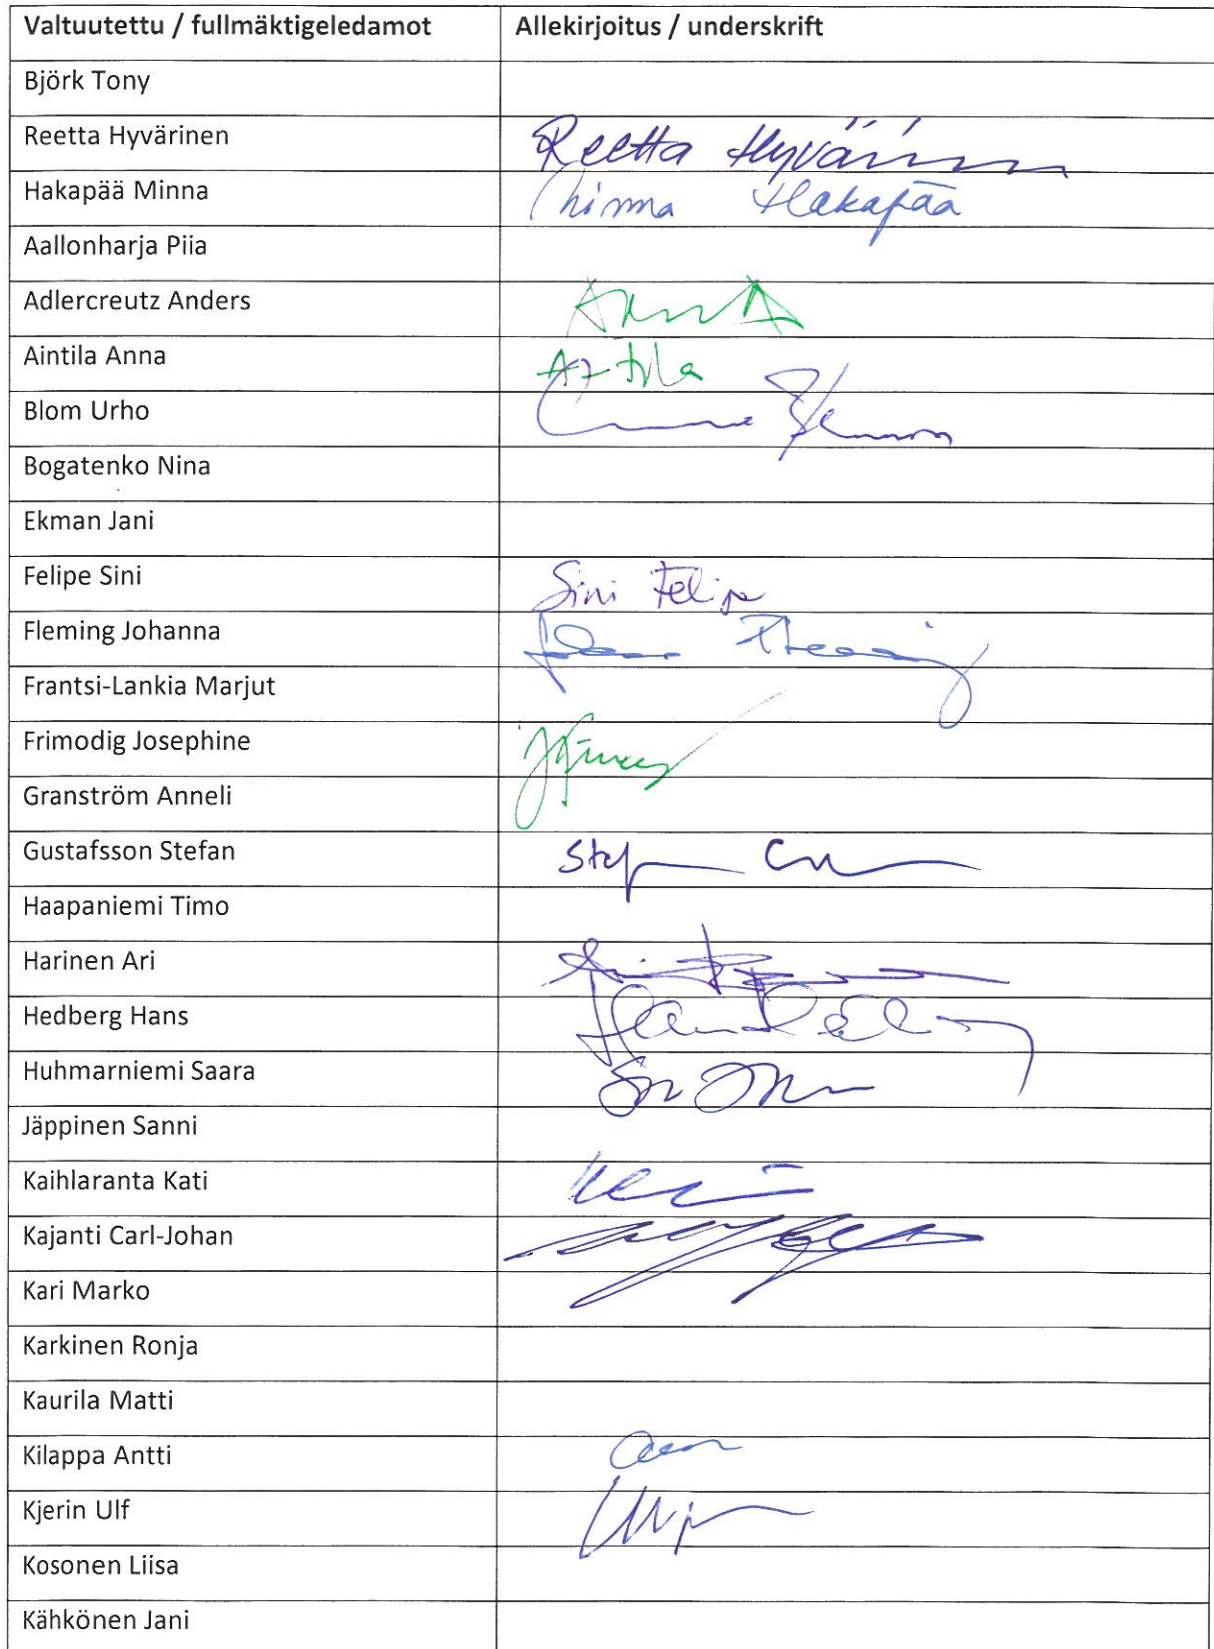 Valtuutettu / fullmäktigeledamot Allekirjoitus / underskrift
Björk Tony
Reetta Hyvärinen Reetta Hyvärinen
Hakapää Minna Minna Hakapää
Aallonharja Piia
Adlercreutz Anders
Aintila Anna
Blom Urho
Bogatenko Nina
Ekman Jani
Felipe Sini Sini Felipe
Fleming Johanna
Frantsi-Lankia Marjut
Frimodig Josephine
Granström Anneli
Gustafsson Stefan
Haapaniemi Timo
Harinen Ari
Hedberg Hans
Huhmarniemi Saara
Jäppinen Sanni
Kaihlaranta Kati
Kajanti Carl-Johan
Kari Marko
Karkinen Ronja
Kaurila Matti
Kilappa Antti
Kjerin Ulf
Kosonen Liisa
Kähkönen Jani